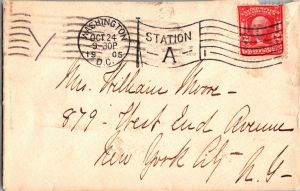 WASHINGTON
OCT 24
9-30P
1905
D.C.
STATION
A
1
Mrs. William Moore—
879- West End Avenue
New York City-
N.Y-